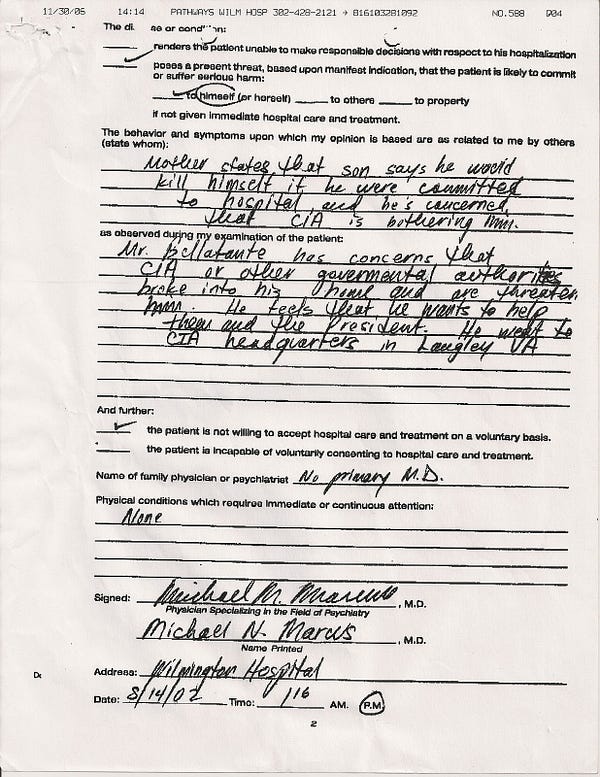 11/30/06 14:14 PATHWAYS WILM HOSP 302-428-2121 → 816103281092 NO.588 004
The di. se or cond on:
renders the patient unable to make responsible decisions with respect to his hospitalization
✓ poses a present threat, based upon manifest indication, that the patient is likely to commit
or suffer serious harm:
✓ to himself (or herself) ____ to others ____ to property
if not given immediate hospital care and treatment.
The behavior and symptoms upon which my opinion is based are as related to me by others
(state whom):
Mother states that son says he would
kill himself if he were committed
to hospital and he's concerned
that CIA is bothering him.
as observed during my examination of the patient:
Mr. Bellafante has concerns that
CIA or other govermental authorities
broke into his home and are threaten
him. He feels that he wants to help
them and the President. He went to
CIA headquarters in Langley VA
And further:
✓ the patient is not willing to accept hospital care and treatment on a voluntary basis.
the patient is incapable of voluntarily consenting to hospital care and treatment.
Name of family physician or psychiatrist No primary M.D.
Physical conditions which requires immediate or continuous attention:
None
Signed: Michael M. Marcus, M.D.
Physician Specializing in the Field of Psychiatry
Michael N. Marcus, M.D.
Name Printed
Address: Wilmington Hospital
Dc
Date: 8/14/02 Time: 1:16 AM. P.M.
2